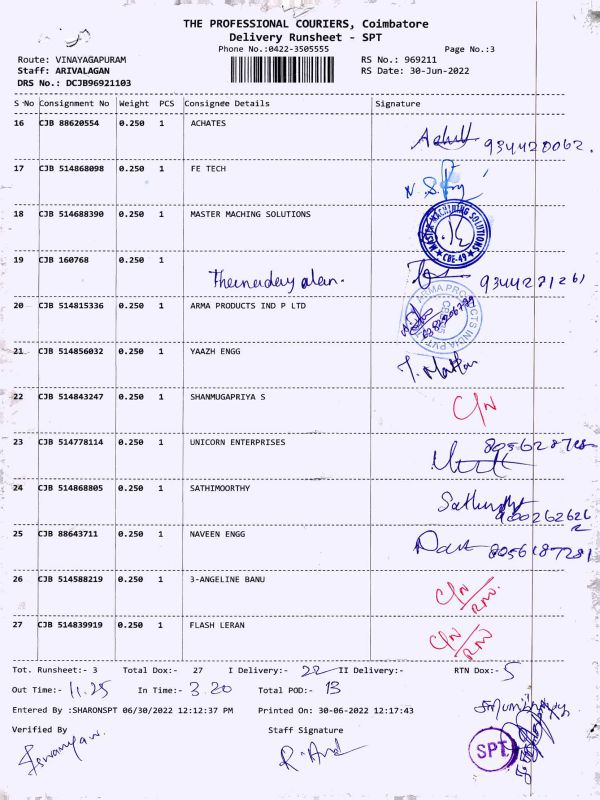 THE PROFESSIONAL COURIERS, Coimbatore
Delivery Runsheet - SPT
Phone No.:0422-3505555
Page No.:3
Route: VINAYAGAPURAM
RS No.: 969211
Staff: ARIVALAGAN
RS Date: 30-Jun-2022
DRS No.: DCJB96921103
S No Consignment No Weight PCS Consignee Details Signature
16 CJB 88620554 0.250 1 ACHATES
17 CJB 514868098 0.250 1 FE TECH
18 CJB 514688390 0.250 1 MASTER MACHING SOLUTIONS
MASTER MACHINING SOLUTIONS
CBE-49
19 CJB 160768 0.250 1
9344281261
20 CJB 514815336 0.250 1 ARMA PRODUCTS IND P LTD
ARMA PRODUCTS INDIA PVT
21 CJB 514856032 0.250 1 YAAZH ENGG
22 CJB 514843247 0.250 1 SHANMUGAPRIYA S C/N
23 CJB 514778114 0.250 1 UNICORN ENTERPRISES
24 CJB 514868805 0.250 1 SATHIMOORTHY
25 CJB 88643711 0.250 1 NAVEEN ENGG 8056187281
26 CJB 514588219 0.250 1 3-ANGELINE BANU C/N/RNO.
27 CJB 514839919 0.250 1 FLASH LERAN C/N/RNO
Tot. Runsheet:- 3 Total Dox:- 27 I Delivery:- 22 II Delivery:- RTN Dox:- 5
Out Time:- 11.25 In Time:- 3.20 Total POD:- 13
Entered By :SHARONSPT 06/30/2022 12:12:37 PM Printed On: 30-06-2022 12:17:43
Verified By Staff Signature
SPT